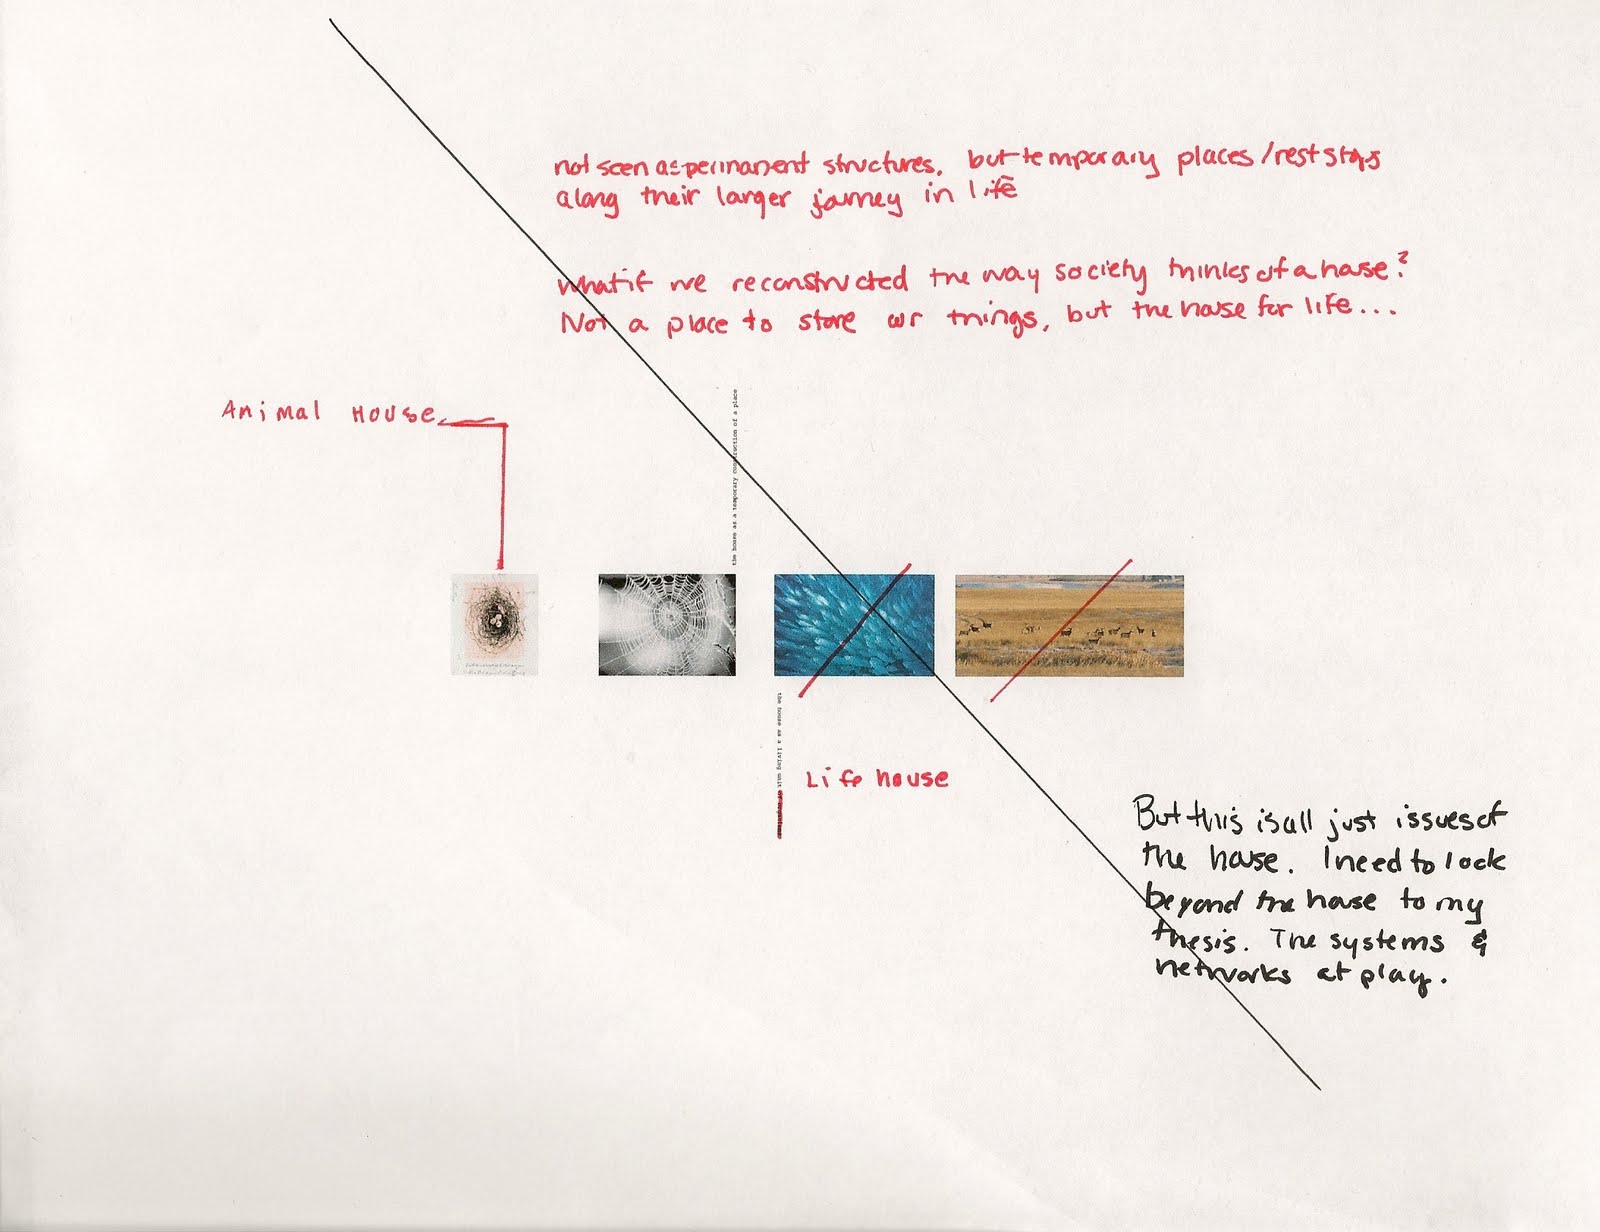 not seen as permanent structures, but temporary places/rest stops
along their larger journey in life
what if we reconstructed the way society thinks of a house?
Not a place to store our things, but the house for life...
Animal House
the house as a temporary construction of a place
the house as a living unit
Life house
But this is all just issues of
the house. I need to look
beyond the house to my
thesis. The systems &
networks at play.